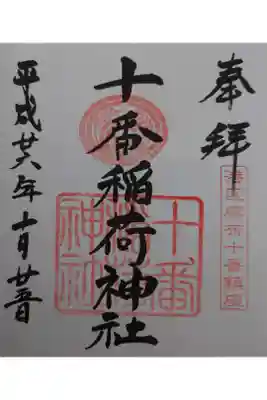 奉拝
港区麻布十番鎮座
十番稲荷神社
十番稲荷神社
平成廿六年十月廿一日